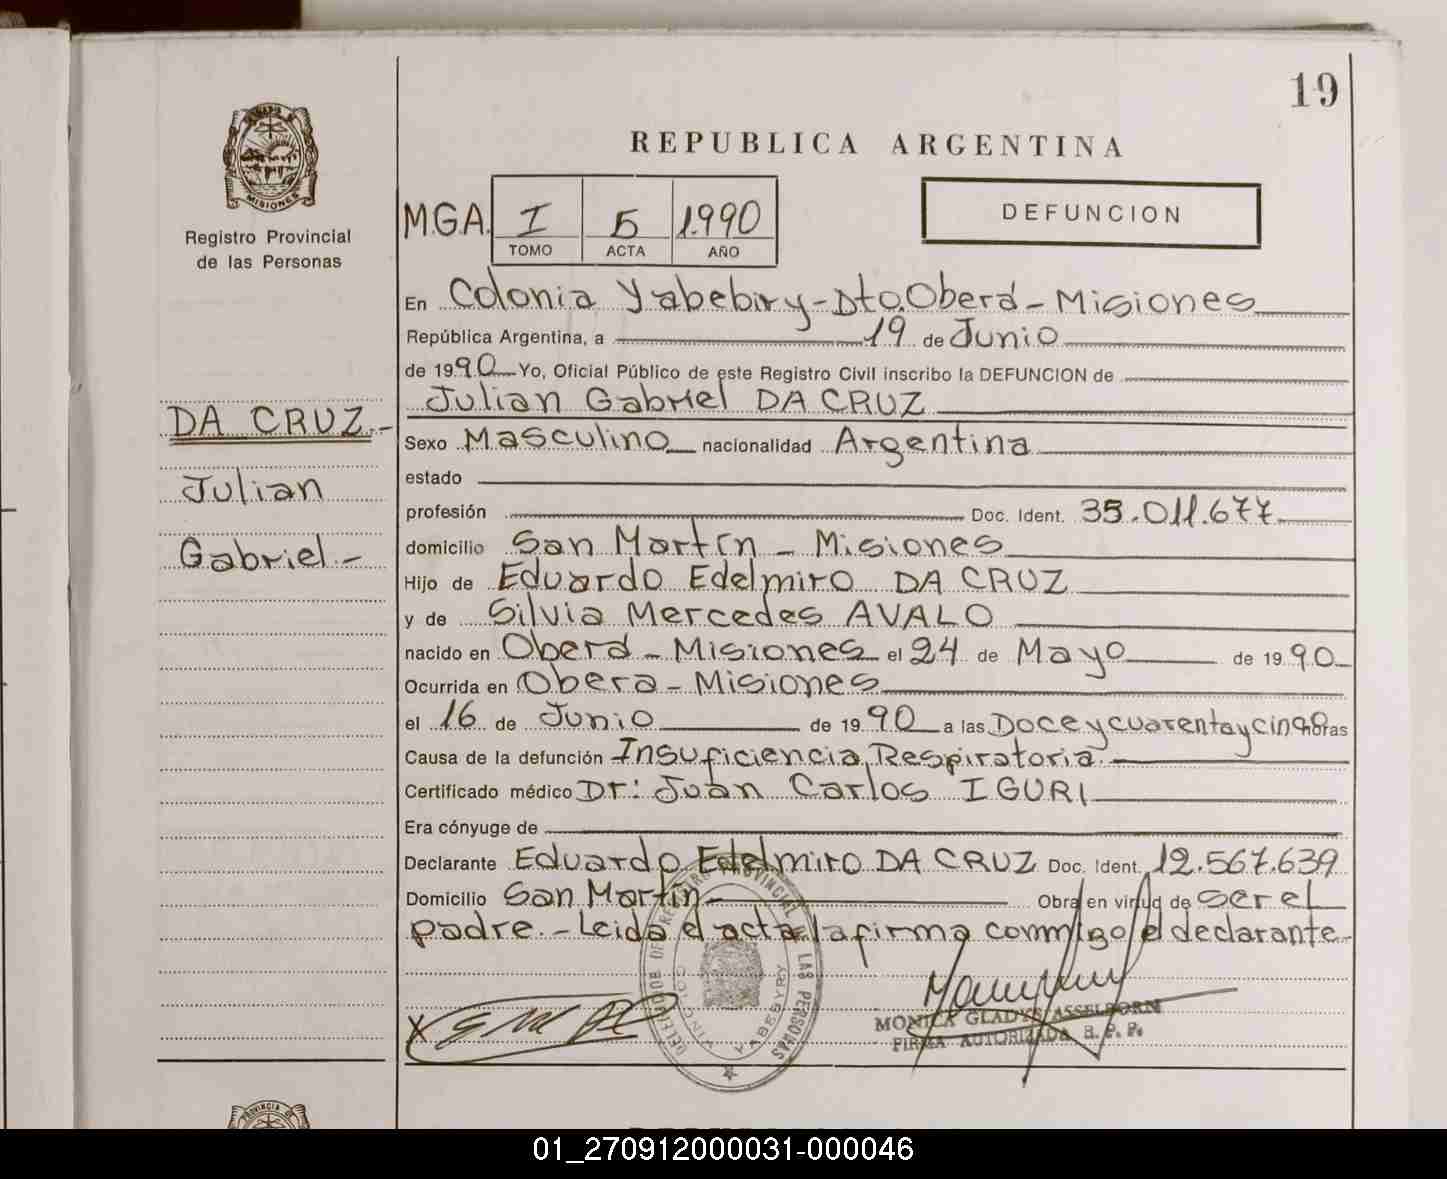 19
REPUBLICA ARGENTINA
MISIONES
Registro Provincial
de las Personas
M.G.A. I 5 1.990
TOMO ACTA AÑO
DEFUNCION
En Colonia Yabebiry - Dto. Oberá - Misiones
República Argentina, a 19 de Junio
de 1990 Yo, Oficial Público de este Registro Civil inscribo la DEFUNCION de
Julian Gabriel DA CRUZ
DA CRUZ.-
Julian
Gabriel.-
Sexo Masculino nacionalidad Argentina
estado
profesión Doc. Ident. 35.011.677
domicilio San Martín - Misiones
Hijo de Eduardo Edelmiro DA CRUZ
y de Silvia Mercedes AVALO
nacido en Oberá - Misiones el 24 de Mayo de 1990
Ocurrida en Obera - Misiones
el 16 de Junio de 1990 a las Doce y cuarenta y cinco horas
Causa de la defunción Insuficiencia Respiratoria.
Certificado médico Dr: Juan Carlos IGURI
Era cónyuge de
Declarante Eduardo Edelmiro DA CRUZ Doc. Ident. 12.567.639
Domicilio San Martín Obra en virtud de ser el
padre. - Leida el acta la firma conmigo el declarante
DELEGADOR DEL REGISTRO PROVINCIAL DE LAS PERSONAS
YABEBYRY
X
MONICA GLADYS ASSELBORN
FIRMA AUTORIZADA R. P. P.
PROVINCIA DE
01_270912000031-000046